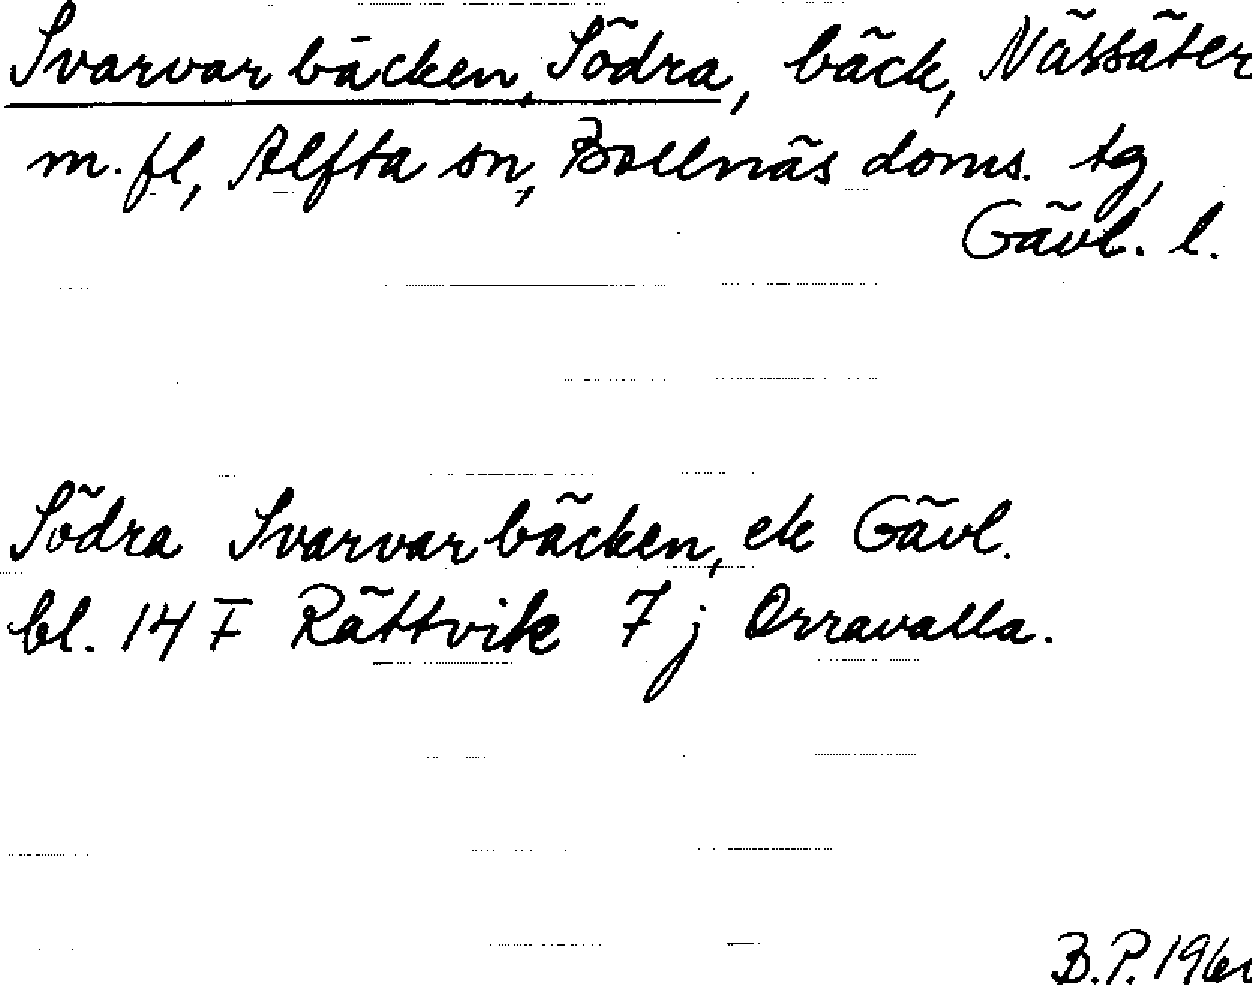 Svarvarbäcken, Södra, bäck, Nässäter
m. fl, Alfta sn, Bollnäs doms. tg,
Gävl. l.
Södra Svarvarbäcken, ek Gävl.
bl. 14 F Rättvik 7 j Orravalla.
B.P.